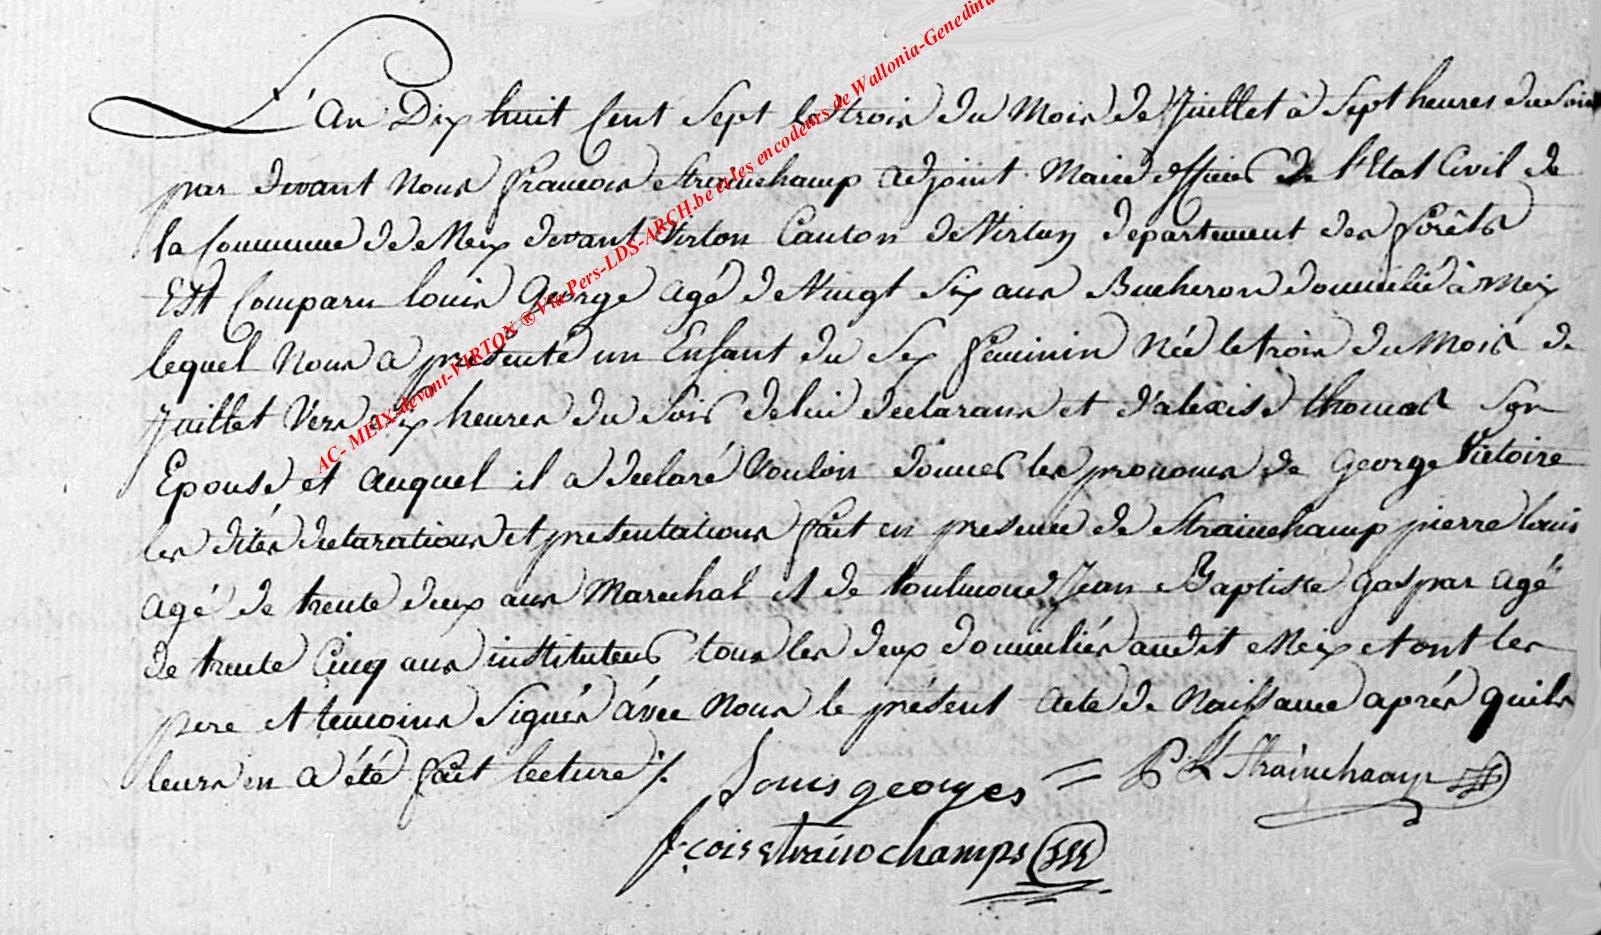 L'An Dix huit Cent Sept le trois du Mois de Juillet à Sept heures du Soir
par devant Nous François Strainchamp adjoint Maire officier de l'Etat Civil de
la Commune de Meix devant Virton Canton de Virton departement des Forêts
Est Comparu louis George agé de Vingt Six ans Bucheron domicilié à Meix
lequel Nous a presenté un Enfant du Sex feminin Née le trois du Mois de
Juillet Vers six heures du Soir de lui declarans et d'alexise thomas Son
Epouse et auquel il a declaré Vouloir donner les prenoms de George Victoire
les dités declarations et presentations fait en presence de Strainchamp pierre louis
agé de trente deux ans Marechal et de Jean Baptiste Gaspar agé
de trente Cinq ans instituteur tous les deux domiciliés audit Meix et ont les
pere et temoins Signés àvec Nous le présent acte de Naissance aprés quils
leurs en a été fait lecture /.
Louis georges = P L Strainchamp
fçois strainchamps
AC- MEIX-devant-VIRTON ® Via Pers-LDS-ARCH.be et les encodeurs de Wallonia-Genedinfo